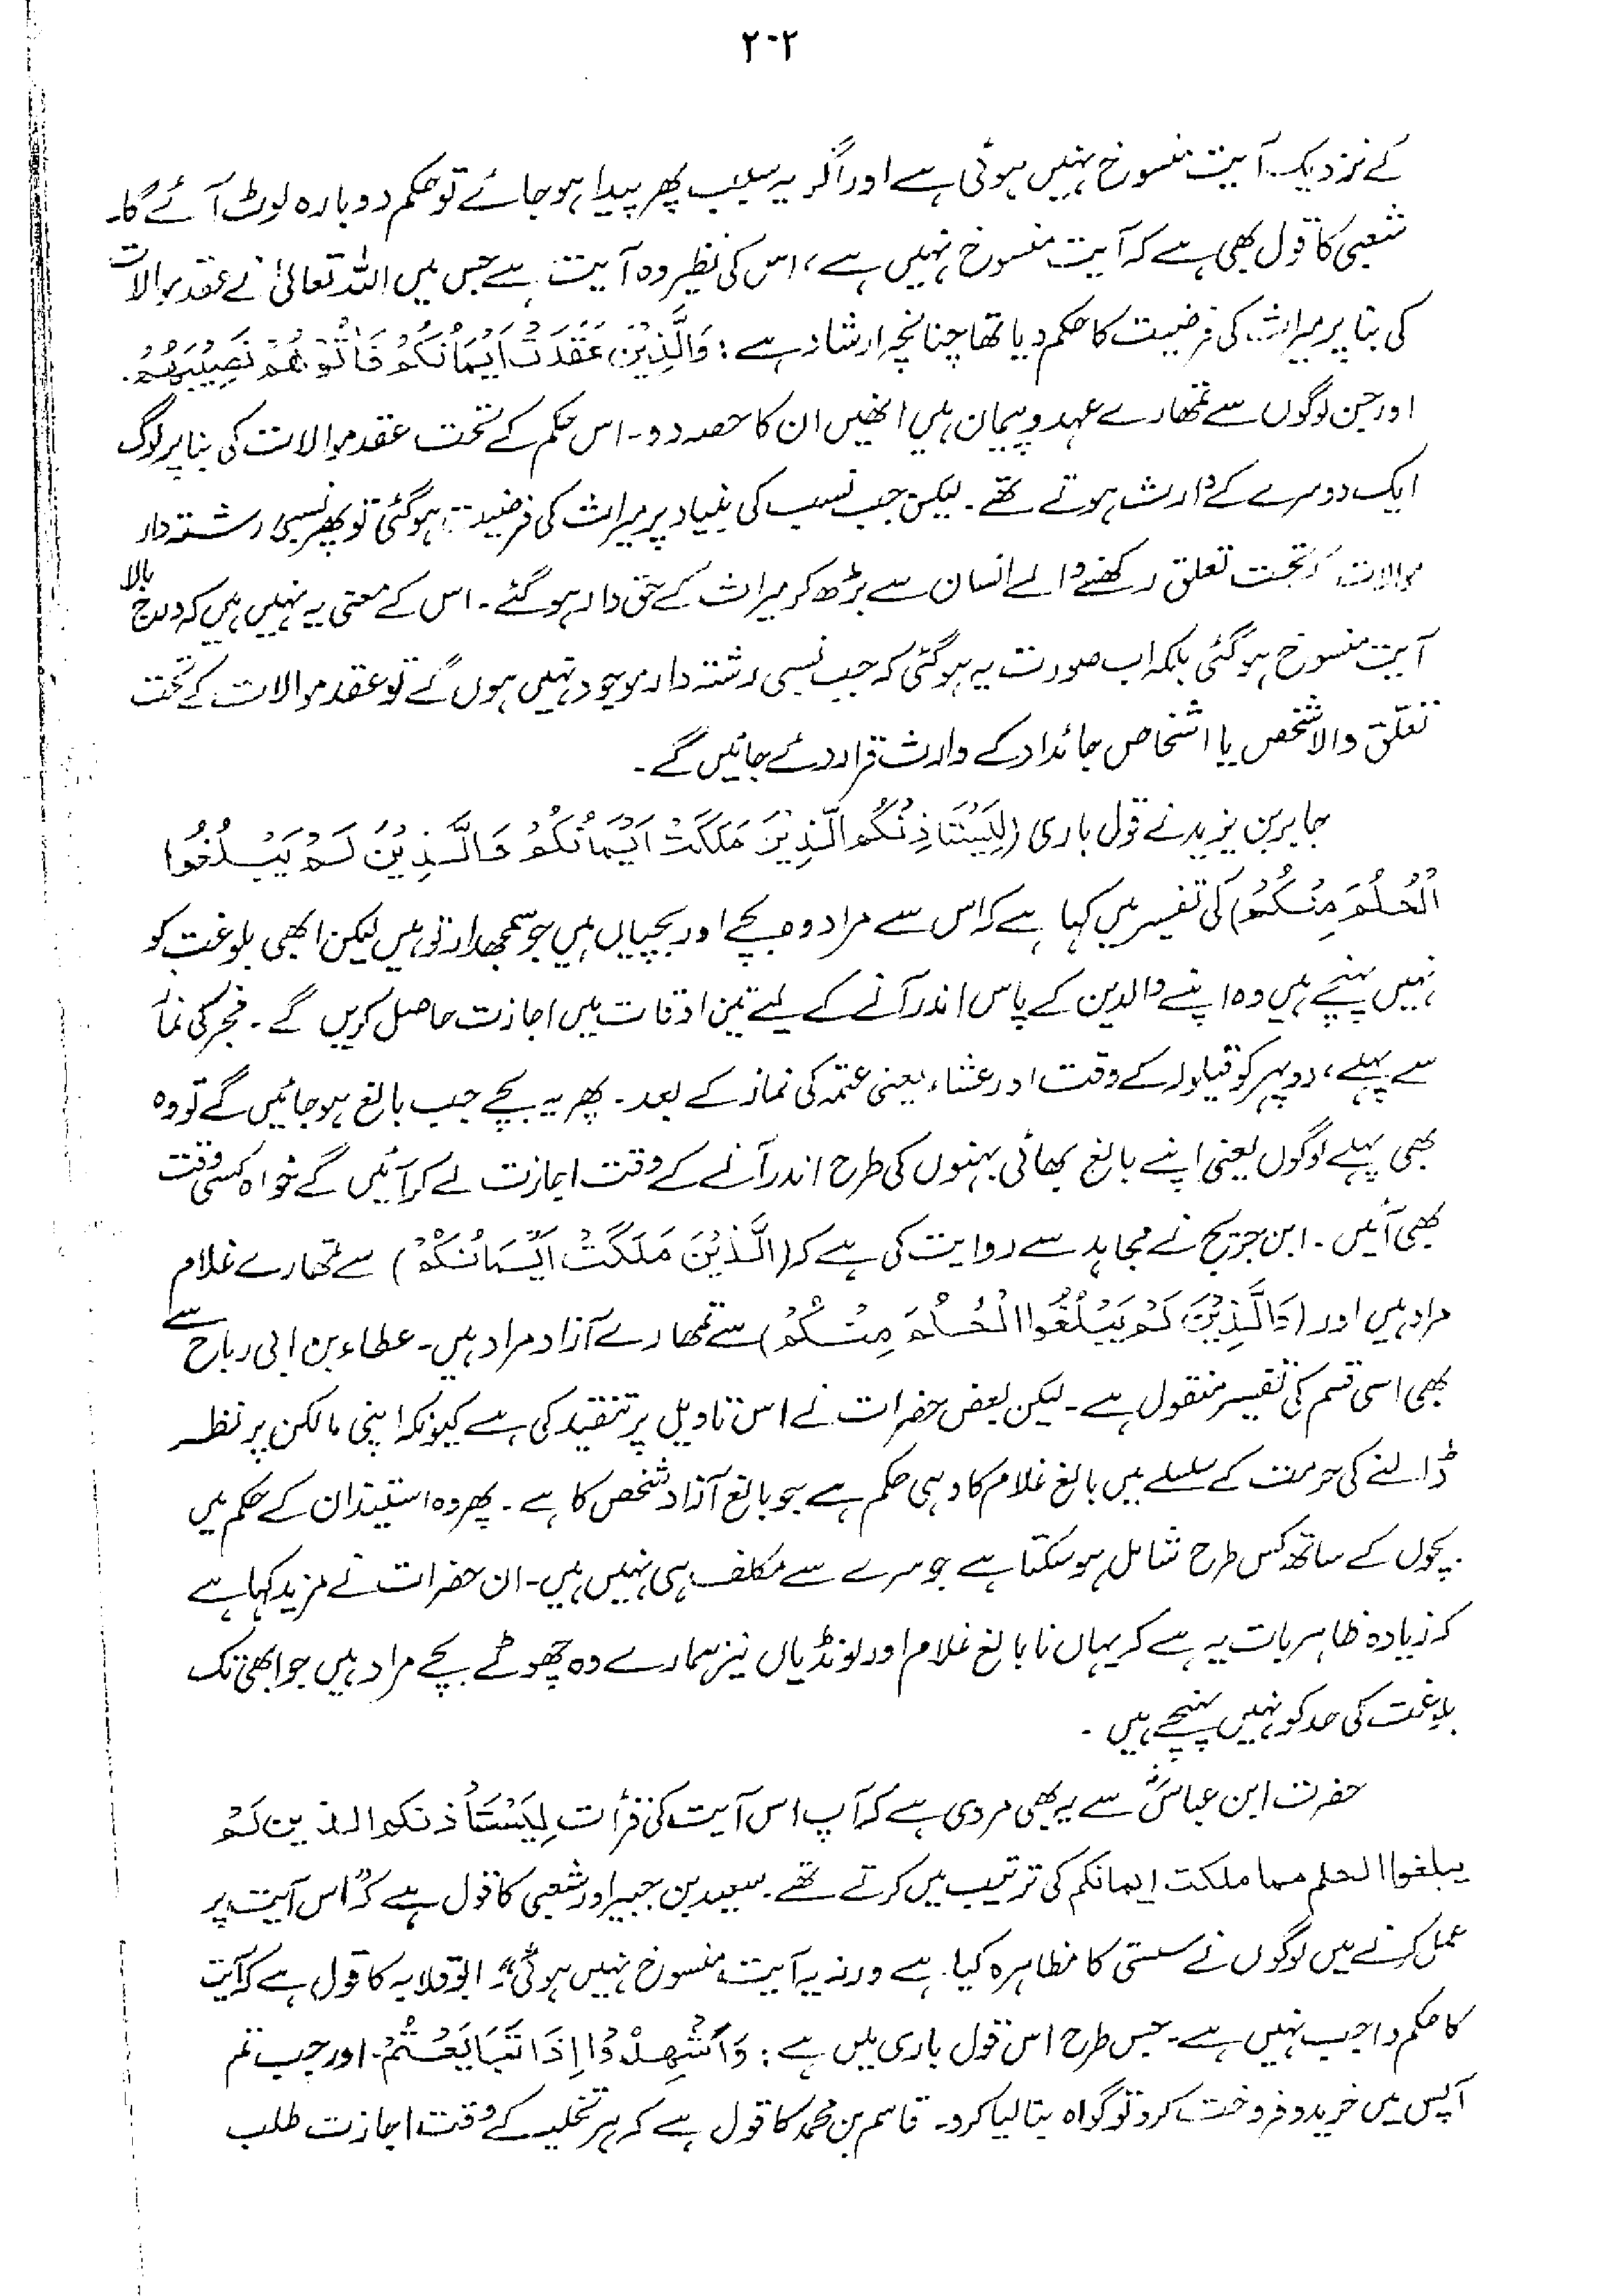 ۲۰۲
کے نزدیک آیت منسوخ نہیں ہوئی ہے اور اگر یہ سبب پھر پیدا ہو جائے تو حکم دوبارہ لوٹ آئے گا۔
شعبی کا قول بھی ہے کہ آیت منسوخ نہیں ہے، اس کی نظیر وہ آیت ہے جس میں اللہ تعالیٰ نے عقد موالات
کی بنا پر میراث کی فرضیت کا حکم دیا تھا چنانچہ ارشاد ہے : وَالَّذِیْنَ عَقَدَتْ اَیْمَانُکُمْ فَاٰتُوْھُمْ نَصِیْبَھُمْ.
اور جن لوگوں سے تمھارے عہد و پیمان ہیں انھیں ان کا حصہ دو۔ اس حکم کے تحت عقد موالات کی بنا پر لوگ
ایک دوسرے کے وارث ہوتے تھے۔ لیکن جب نسب کی بنیاد پر میراث کی فرضیت ہو گئی تو پھر نسبی رشتہ دار
موالات کے تحت تعلق رکھنے والے انسان سے بڑھ کر میراث کے حق دار ہو گئے۔ اس کے معنی یہ نہیں ہیں کہ درج بالا
آیت منسوخ ہو گئی بلکہ اب صورت یہ ہو گئی کہ جب نسبی رشتہ دار موجود نہیں ہوں گے تو عقد موالات کے تحت
تعلق والا شخص یا اشخاص جائداد کے وارث قرار دئے جائیں گے۔
جابر بن یزید نے قول باری (لِیَسْتَاْذِنْکُمُ الَّذِیْنَ مَلَکَتْ اَیْمَانُکُمْ وَالَّذِیْنَ لَمْ یَبْلُغُوا
الْحُلُمَ مِنْکُمْ) کی تفسیر میں کہا ہے کہ اس سے مراد وہ بچے اور بچیاں ہیں جو سمجھدار تو ہیں لیکن ابھی بلوغت کو
نہیں پہنچے ہیں وہ اپنے والدین کے پاس اندر آنے کے لیے تین اوقات میں اجازت حاصل کریں گے۔ فجر کی نماز
سے پہلے، دوپہر کو قیلولہ کے وقت اور عشاء یعنی عتمہ کی نماز کے بعد۔ پھر یہ بچے جب بالغ ہو جائیں گے تو وہ
بھی پہلے لوگوں یعنی اپنے بالغ بھائی بہنوں کی طرح اندر آنے کے وقت اجازت لے کر آئیں گے خواہ کسی وقت
بھی آئیں۔ ابن جریج نے مجاہد سے روایت کی ہے کہ (الَّذِیْنَ مَلَکَتْ اَیْمَانُکُمْ) سے تمھارے غلام
مراد ہیں اور (وَالَّذِیْنَ لَمْ یَبْلُغُوا الْحُلُمَ مِنْکُمْ) سے تمھارے آزاد مراد ہیں۔ عطاء بن ابی رباح سے
بھی اسی قسم کی تفسیر منقول ہے۔ لیکن بعض حضرات نے اس تاویل پر تنقید کی ہے کیونکہ اپنی مالکن پر نظر
ڈالنے کی حرمت کے سلسلے میں بالغ غلام کا وہی حکم ہے جو بالغ آزاد شخص کا ہے۔ پھر وہ استیذان کے حکم میں
بچوں کے ساتھ کس طرح شامل ہو سکتا ہے جو سرے سے مکلف ہی نہیں ہیں۔ ان حضرات نے مزید کہا ہے
کہ زیادہ ظاہر بات یہ ہے کہ یہاں نابالغ غلام اور لونڈیاں نیز ہمارے وہ چھوٹے بچے مراد ہیں جو ابھی تک
بلوغت کی حد کو نہیں پہنچے ہیں۔
حضرت ابن عباسؓ سے یہ بھی مروی ہے کہ آپ اس آیت کی قرأت لِیَسْتَأْذنکم الذین لَمْ
یبلغوا الحلم مما ملکت ایمانکم کی ترتیب میں کرتے تھے۔ سعید بن جبیر اور شعبی کا قول ہے کہ "اس آیت پر
عمل کرنے میں لوگوں نے سستی کا مظاہرہ کیا ہے ورنہ یہ آیت منسوخ نہیں ہوئی"۔ ابو قلابہ کا قول ہے کہ آیت
کا حکم واجب نہیں ہے۔ جس طرح اس قول باری میں ہے : وَاَشْھِدُوْا اِذَا تَبَایَعْتُمْ۔ اور جب تم
آپس میں خرید و فروخت کرو تو گواہ بنا لیا کرو۔ قاسم بن محمد کا قول ہے کہ ہر تخلیہ کے وقت اجازت طلب